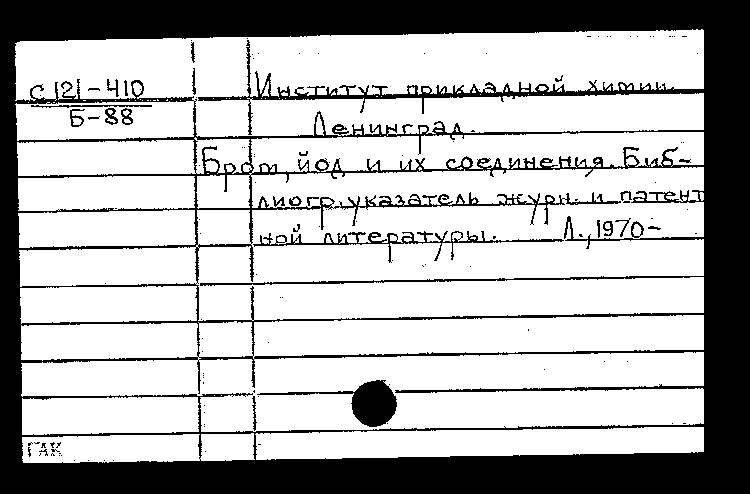 С 121-410
Б-88
Институт прикладной химии.
Ленинград.
Бром, йод и их соединения. Биб-
лиогр. указатель журн. и патент
ной литературы. Л., 1970-
ГАК